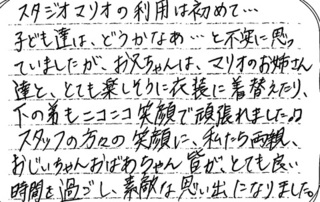 スタジオマリオの利用は初めて…
子ども達は、どうかなあ…と不安に思っ
ていましたが、お兄ちゃんは、マリオのお姉さん
達と、とても楽しそうに衣装に着替えたり、
下の弟もニコニコ笑顔で頑張れました♫
スタッフの方々の笑顔に、私たち両親、
おじいちゃんおばあちゃん皆が、とても良い
時間を過ごし、素敵な思い出になりました。